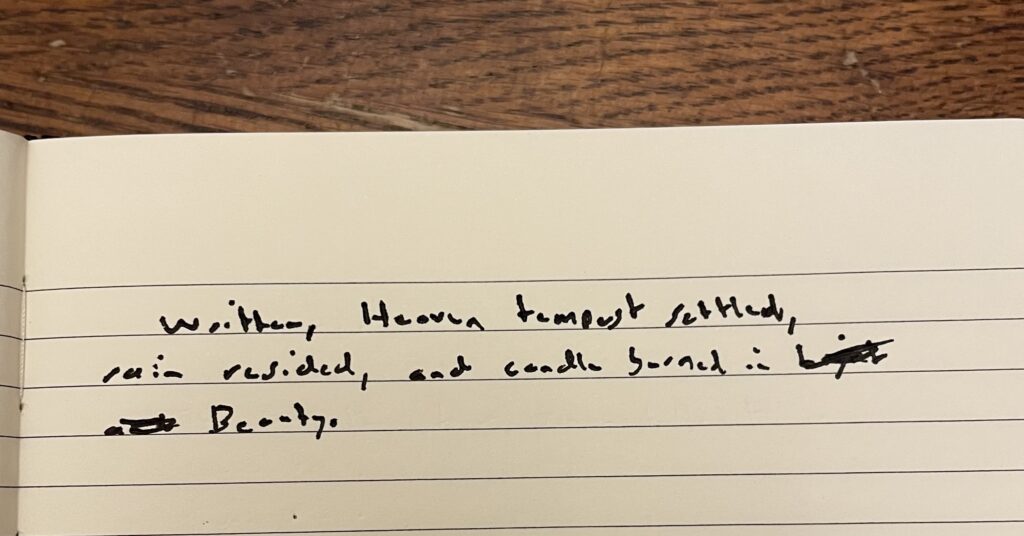 Written, Heaven tempest settled,
rain resided, and candle burned in
Beauty.